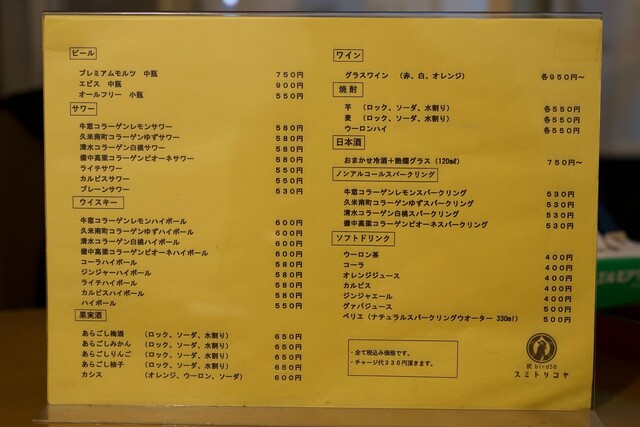 ビール
プレミアムモルツ 中瓶 750円
エビス 中瓶 900円
オールフリー 小瓶 550円
サワー
牛窓コラーゲンレモンサワー 580円
久米南町コラーゲンゆずサワー 580円
清水コラーゲン白桃サワー 580円
備中高梁コラーゲンピオーネサワー 580円
ライチサワー 550円
カルピスサワー 550円
プレーンサワー 530円
ウイスキー
牛窓コラーゲンレモンハイボール 600円
久米南町コラーゲンゆずハイボール 600円
清水コラーゲン白桃ハイボール 600円
備中高梁コラーゲンピオーネハイボール 600円
コーラハイボール 580円
ジンジャーハイボール 580円
ライチハイボール 580円
カルピスハイボール 580円
ハイボール 550円
果実酒
あらごし梅酒 (ロック、ソーダ、水割り) 650円
あらごしみかん (ロック、ソーダ、水割り) 650円
あらごしりんご (ロック、ソーダ、水割り) 650円
あらごし柚子 (ロック、ソーダ、水割り) 650円
カシス (オレンジ、ウーロン、ソーダ) 600円
ワイン
グラスワイン (赤、白、オレンジ) 各950円～
焼酎
芋 (ロック、ソーダ、水割り) 各550円
麦 (ロック、ソーダ、水割り) 各550円
ウーロンハイ 各550円
日本酒
おまかせ冷酒+熱燗グラス (120mℓ) 750円～
ノンアルコールスパークリング
牛窓コラーゲンレモンスパークリング 530円
久米南町コラーゲンゆずスパークリング 530円
清水コラーゲン白桃スパークリング 530円
備中高梁コラーゲンピオーネスパークリング 530円
ソフトドリンク
ウーロン茶 400円
コーラ 400円
オレンジジュース 400円
カルピス 400円
ジンジャエール 400円
グァバジュース 500円
ペリエ (ナチュラルスパークリングウオーター 330ml) 500円
・全て税込み価格です。
・チャージ代330円頂きます。
炭 bird58
スミトリコヤ